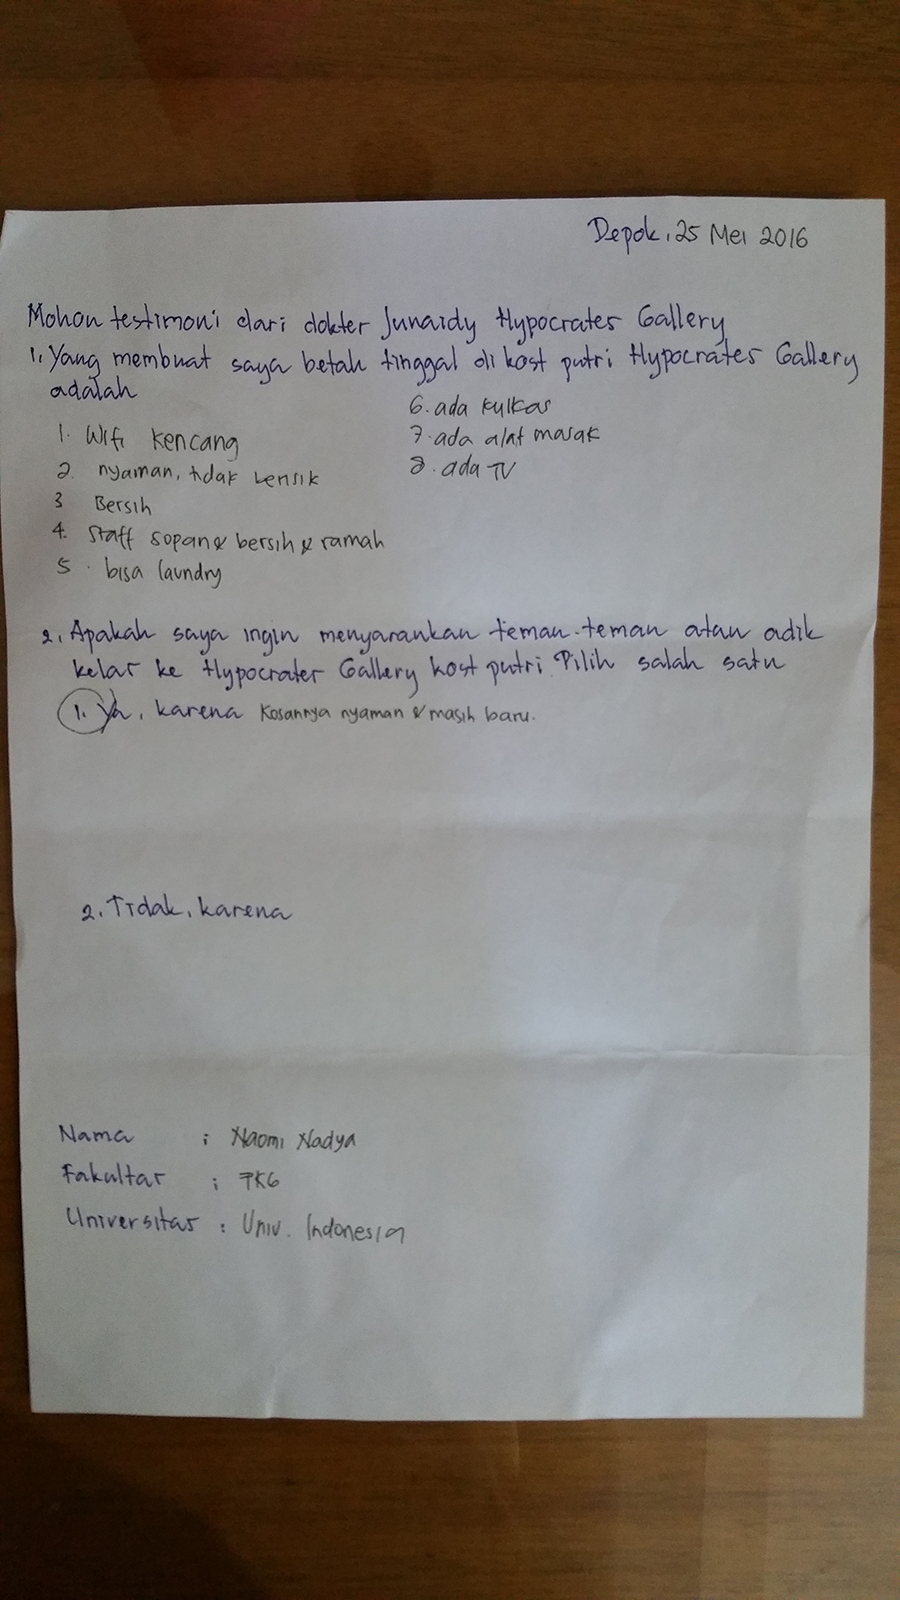 Depok, 25 Mei 2016
Mohon testimoni dari dokter Junaidy Hypocrates Gallery
1. Yang membuat saya betah tinggal di kost putri Hypocrates Gallery
adalah
1. Wifi kencang
2. nyaman, tidak berisik
3 Bersih
4. Staff sopan & bersih & ramah
5. bisa laundry
6. ada kulkas
7. ada alat masak
8. ada TV
2. Apakah saya ingin menyarankan teman-teman atau adik
kelas ke Hypocrates Gallery kost putri. Pilih salah satu
1. Ya, karena Kosannya nyaman & masih baru.
2. Tidak, karena
Nama : Naomi Nadya
Fakultas : FKG
Universitas : Univ. Indonesia